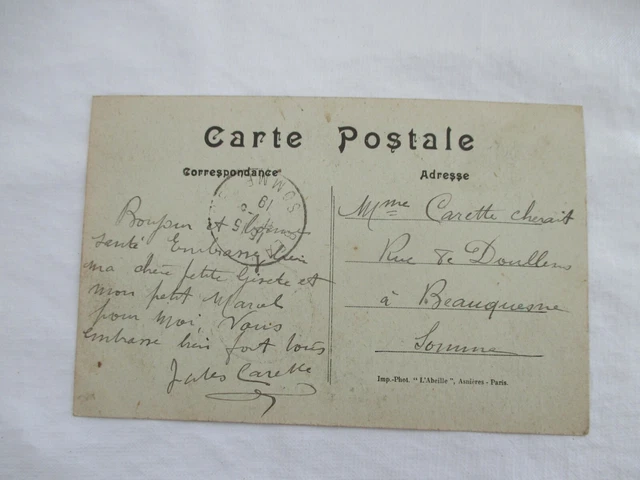 Carte Postale
Correspondance
Adresse
SOMME
19
Bonjour et bonne
santé Embrassez bien
ma chère petite Gisèle et
mon petit Marcel
pour moi, Vous
embrasse bien fort tous
Jules Carette
Mme Carette
Rue de Doullens
à Beauquesne
Somme
Imp.-Phot. "L'Abeille", Asnières - Paris.